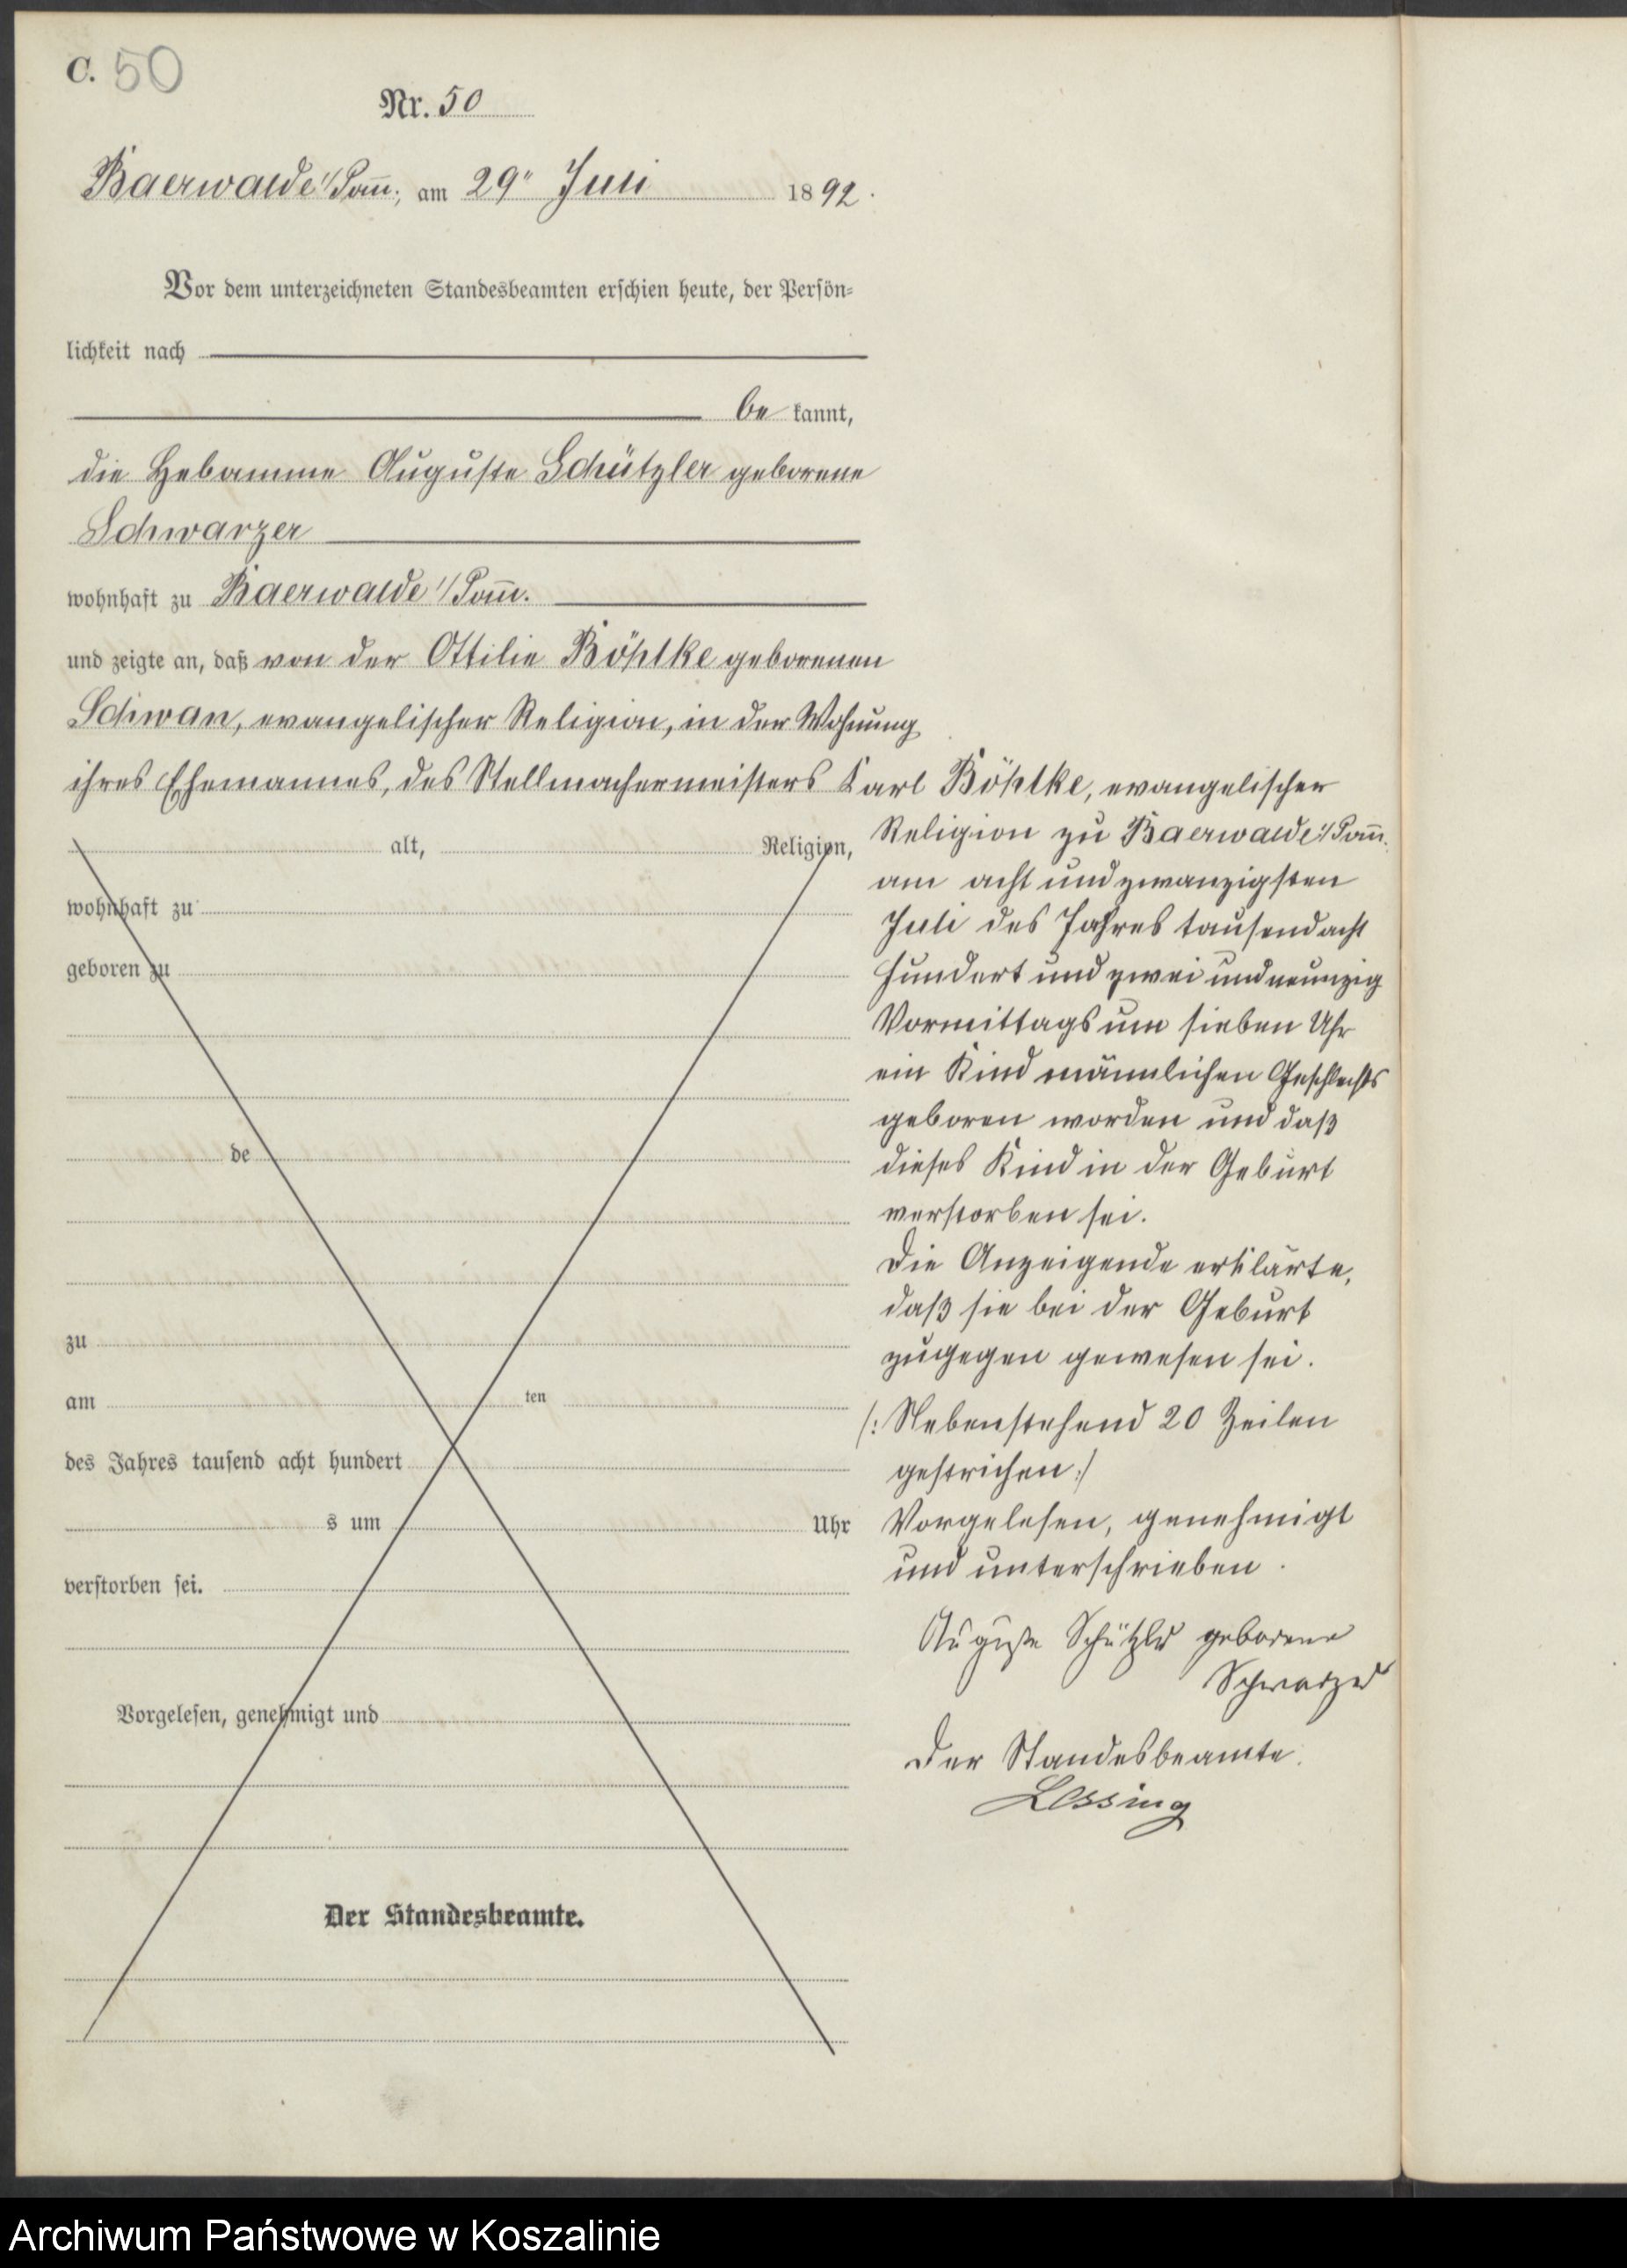 C. 50
Nr. 50
Baerwalde i/Pom̄., am 29" Juli 1892.
Vor dem unterzeichneten Standesbeamten erschien heute, der Persön-
lichkeit nach
be kannt,
die Hebamme Auguste Schützler geborene
Schwarzer
wohnhaft zu Baerwalde i/Pom̄.
und zeigte an, daß von der Ottilie Böhlke geborenen
Schwan, evangelischer Religion, in der Wohnung
ihres Ehemannes, des Stellmachermeisters Karl Böhlke, evangelischer
Religion zu Baerwalde i/Pom̄.
am acht und zwanzigsten
Juli des Jahres tausend acht
hundert und zwei und neunzig
Vormittags um sieben Uhr
ein Kind männlichen Geschlechts
geboren worden und daß
dieses Kind in der Geburt
verstorben sei.
Die Anzeigende erklärte,
daß sie bei der Geburt
zugegen gewesen sei.
/: Nebenstehend 20 Zeilen
gestrichen :/
Vorgelesen, genehmigt
und unterschrieben.
Auguste Schützler geborene
Schwarzer
Der Standesbeamte.
Lessing
alt, Religion,
wohnhaft zu
geboren zu
de
zu
am ten
des Jahres tausend acht hundert
s um Uhr
verstorben sei.
Vorgelesen, genehmigt und
Der Standesbeamte.
Archiwum Państwowe w Koszalinie